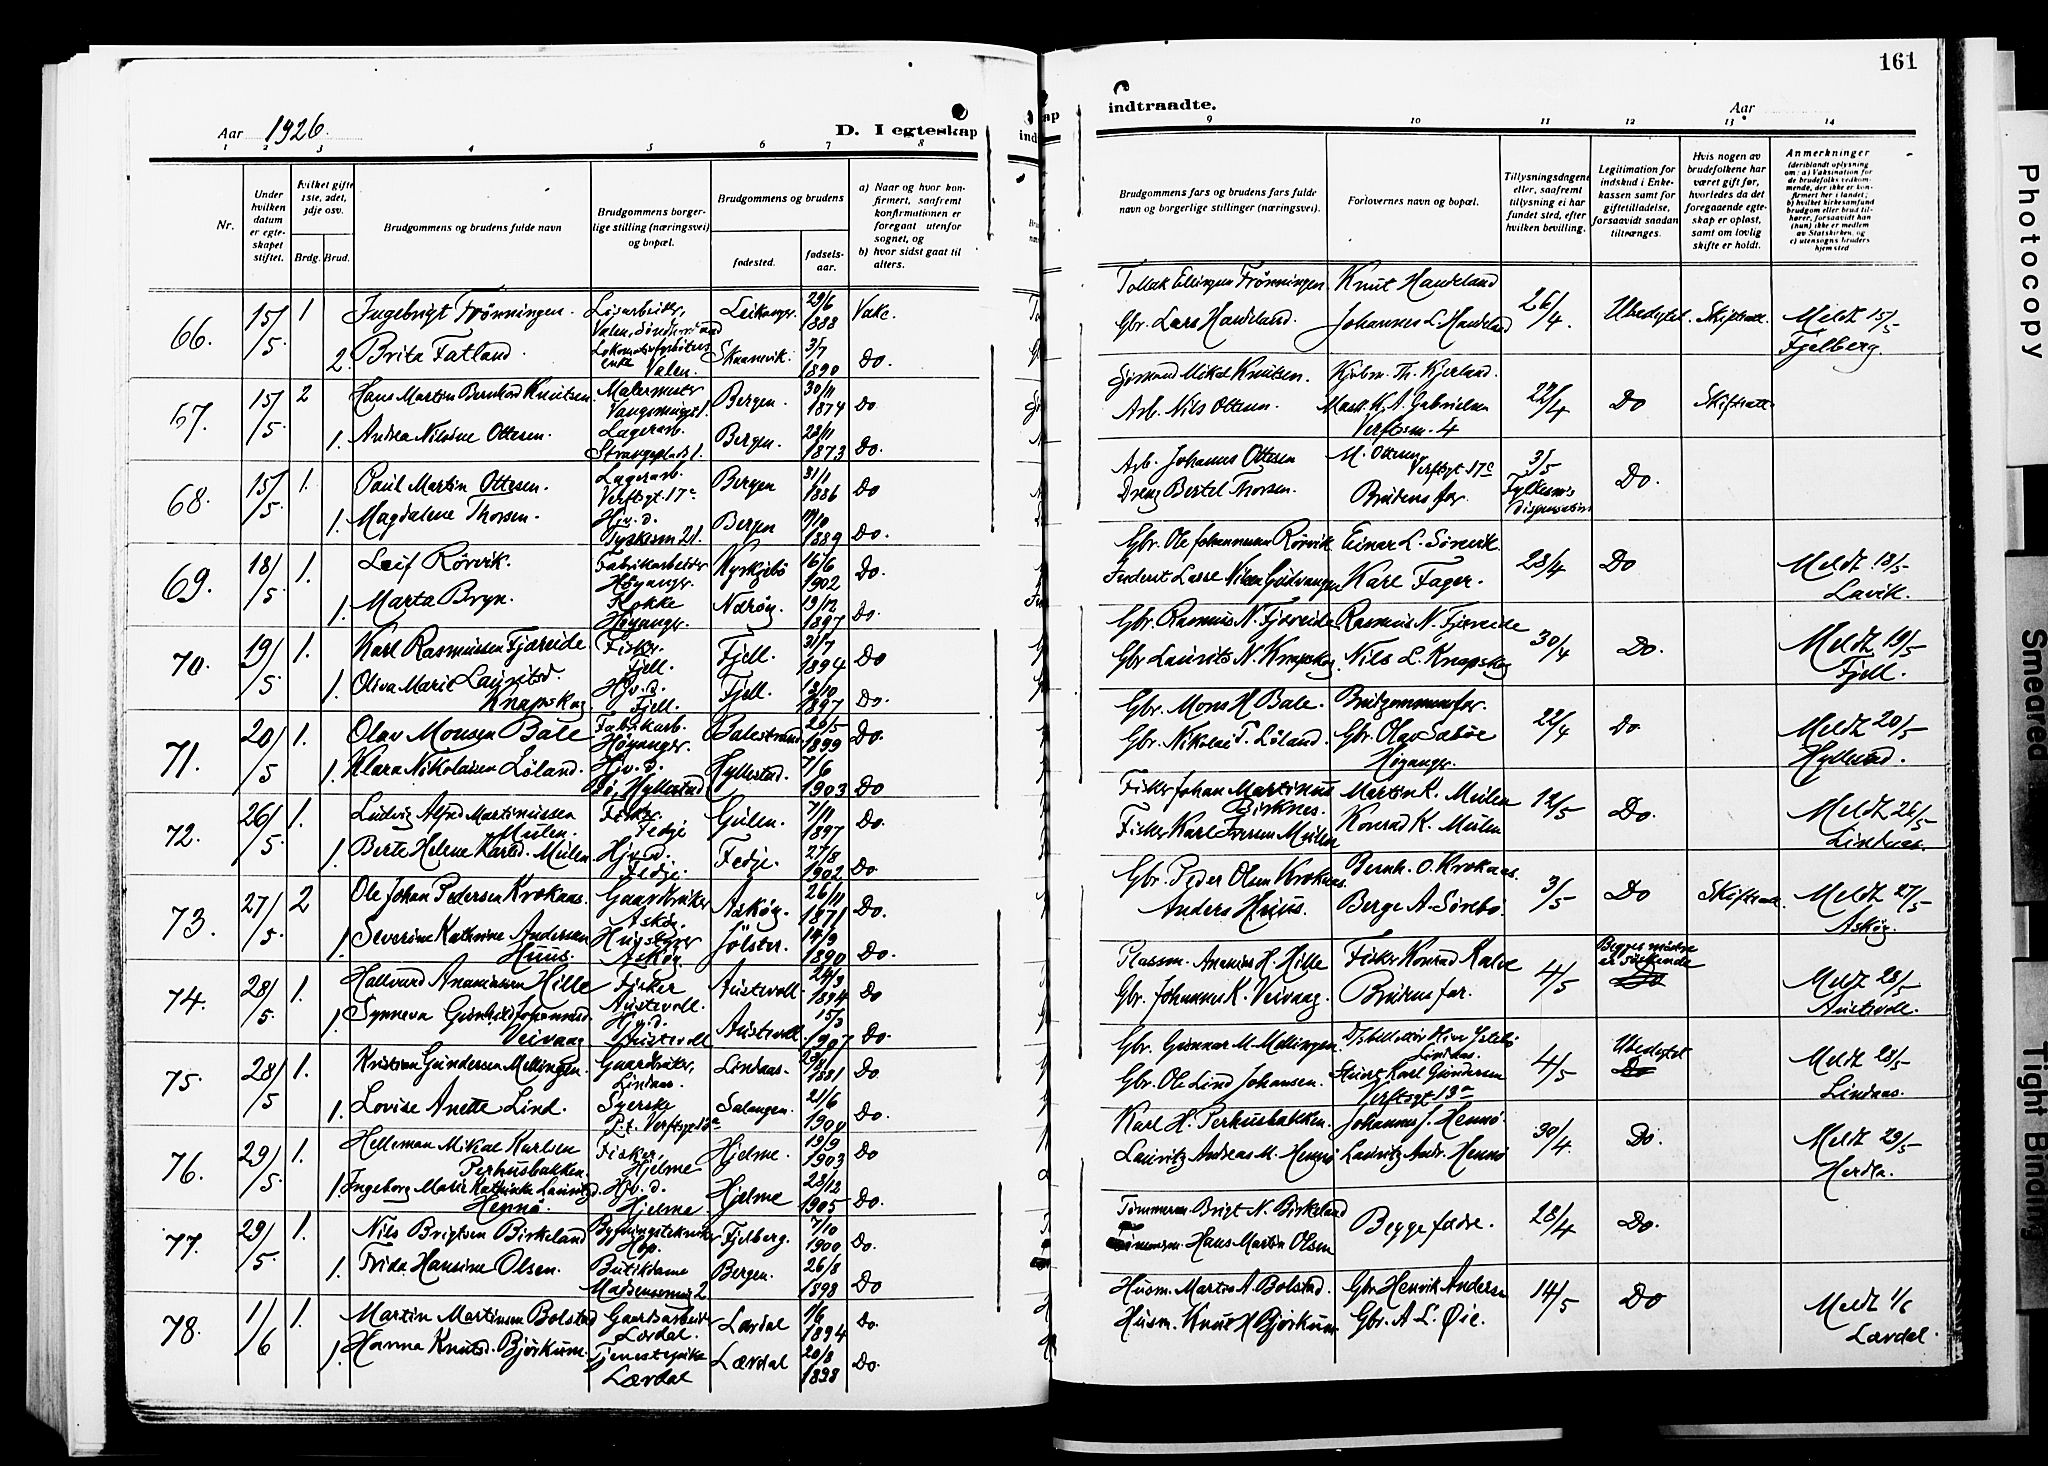 161
Aar 1926.
D. I egteskap
indtraadte.
Aar
1 2 3 4 5 6 7 8
9 10 11 12 13 14
Nr.
Under hvilken datum er egteskapet stiftet.
hvilket gifte 1ste, 2det, 3dje osv.
Brdg. Brud.
Brudgommens og brudens fulde navn
Brudgommens borgerlige stilling (næringsvei) og bopæl.
Brudgommens og brudens
fødested.
fødselsaar.
a) Naar og hvor konfirmert, saafremt konfirmationen er foregaat utenfor sognet, og
b) hvor sidst gaat til alters.
Brudgommens fars og brudens fars fulde navn og borgerlige stillinger (næringsvei).
Forlovernes navn og bopæl.
Tillysningsdagene eller, saafremt tillysning ei har fundet sted, efter hvilken bevilling.
Legitimation for indskud i Enkekassen samt for giftetilladelse, forsaavidt saadan tiltrænges.
Hvis nogen av brudefolkene har været gift før, hvorledes da det foregaaende egteskap er opløst, samt om lovlig skifte er holdt.
Anmerkninger
(deriblandt oplysning om: a) Vaksination for de brudefolks vedkommende, der ikke er konfirmert her i landet, b) hvilket kirkesamfund brudgom eller brud tilhører, forsaavidt han (hun) ikke er medlem av Statskirken, og c) utensogns bruders hjemsted
66. 15/5 1 Ingebrigt Frønningen. Løsarbeider, Valen, Leikanger. 29/6 1888 Vakc.
2. Brita Fatland. Valen. Skaanevik. 3/7 1890 Do.
Knut Handeland
Gbr. Lars Handeland. Johannes L. Handeland 26/4. Ubedytet. Skifteatt. Meldt 15/5 Fjelberg.
67. 15/5 2 Hans Martin Bernhard Knutsen Malermester Bergen. 30/11 1874 Do
1. Andrea Nilsine Ottesen. Lagerarb. Strangeplads 1. Bergen. 23/11 1873 Do.
Mikal Knutsen. Kjøbm. Th. Kjerland.
Arb. Nils Ottesen. Mask. K. A. Gabrielsen Verftsm. 4 22/4 Do Skifteatt.
68. 15/5 1. Paul Martin Ottesen. Lagerarb. Verftsgt. 17c Bergen 31/1 1886 Do
1. Magdalene Thorsen. Hjv. d. Tyskesm 21. Bergen 1889 Do.
Arb. Johannes Ottesen M. Ottesen Verftsgt 17c 3/5
Dreng Bertel Thorsen. Brudens far. Fylkesm's dispensation Do.
69. 18/5 1. Leif Rørvik. Fabrikarbeider Høyanger. Kyrkjebø 16/6 1902 Do.
1. Marta Bryn. Kokke Høyanger. Nærøy. 19/12 1897 Do.
Gbr. Ole Johannessen Rørvik Einar L. Sørevik
Lasse Nilsen Gudvangen Karl Fager. 28/4 Do Meldt 18/5 Lavik.
70. 19/5 1. Karl Rasmussen Fjæreide Fisker, Fjell. Fjell. 31/7 1894 Do
1. Oliva Marie Lauritsd. Knapskog Hjv. d. Fjell. Fjell. 13/10 1897 Do.
Gbr. Rasmus N. Fjæreide. Rasmus N. Fjæreide
Gbr Laurits N. Knapskog. Nils L. Knapskog 30/4 Do. Meldt 19/5 Fjell.
71. 20/5 1. Olav Monsen Bale Fabrikarb. Høyanger. Balestrand. 26/5 1899 Do.
1. Klara Nikolaisen Løland. Hjv. d. Bø, Hyllestad Hyllestad. 7/6 1903 Do
Gbr. Mons H Bale. Brudgommens far.
Gbr. Nikolai T. Løland. Gbr. Olav Sæbøe Høyanger. 22/4 Do. Meldt 20/5 Hyllestad.
72. 26/5 1. Ludvig Alfred Martinussen Mulen. Fisker, Fedje Gulen. 7/11 1897 Do.
1. Berte Helene Karlsd. Mulen Hjv. d. Fedje. Fedje. 27/8 1902 Do.
Fisker Johan Martinus Birknes. Martin K. Mulen 12/5
Fisker Karl Iversen Mulen Konrad K. Mulen Do. Meldt 26/5 Lindaas.
73. 27/5 2 Ole Johan Pedersen Kroknas. Gaardbruker Askøy. Askøy. 26/11 1871 Do.
1. Severine Kathrine Andersen Huus. Askøy Jølster. 14/9 1890 Do.
Gbr. Peder Olsen Kroknas. Bernh. O. Kroknas.
Anders Huus. Berge A. Sørebø. 3/5 Do Skifteatt. Meldt 27/5 Askøy.
74. 28/5 1. Hallvard Ananiassen Hille Fisker Austevoll. Austevoll. 24/3 1894 Do
1. Synneva Gunhild Johannesd. Veivaag Hjv. d. Austevoll Austevoll 15/3 1907 Do.
Plassm. Ananias H. Hille Fisker Konrad Kalve
Gbr. Johannes K. Veivaag. Brudens far. 4/5 Begges mødre er søskende Do Meldt 28/5 Austevoll.
75. 28/5 1. Kristian Gundersen Mellingen. Gaardbruker, Lindaas. Lindaas. 1881 Do.
1. Lovise Anette Lind. Syerske P.t. Verftsgt 13a Salangen. 21/6 1900 Do.
Gbr. Gunnar M. Mellingen. Lindaas.
Gbr. Ole Lind Johansen. Karl Gundersen Verftsgt 13a 4/5 Ubedytet Do Meldt 28/5 Lindaas.
76. 29/5 1. Helleman Mikal Karlsen Perhusbakken. Fisker, Hjelme Hjelme. 19/9 1903 Do
1. Ingeborg Marie Kathinka Lauritzd. Hennø. Hjv. d. Hjelme. Hjelme 28/12 1905 Do.
Karl H. Perhusbakken. Johannes J. Hennø.
Lauritz Andreas M. Hennø Lauritz Andr. Hennø 30/4. Do. Meldt 29/5 Herdla.
77. 29/5 1. Nils Brigtsen Birkeland Bygningstekniker Hop. Fjelberg. 7/10 1900 Do.
1. Frida Hansine Olsen. Butikdame 2 Bergen. 26/8 1898 Do
Tømmerm. Brigt N. Birkeland
Tømmerm. Hans Martin Olsen Begge fædre. 28/4 Do.
78. 1/6 1. Martin Martinsen Bolstad Gaardsarbeider Lærdal. Lærdal 1/6 1894 Do.
1. Hanna Knutsd. Bjørkum. Tjenestepike Lærdal Lærdal 20/8 1898 Do.
Husm. Martin A. Bolstad. Gbr. Henrik Andersen
Husm. Knut H Bjørkum Gbr. A L. Øie. 14/5 Do Meldt 1/6 Lærdal.
Photocopy
Smeared
Tight Binding